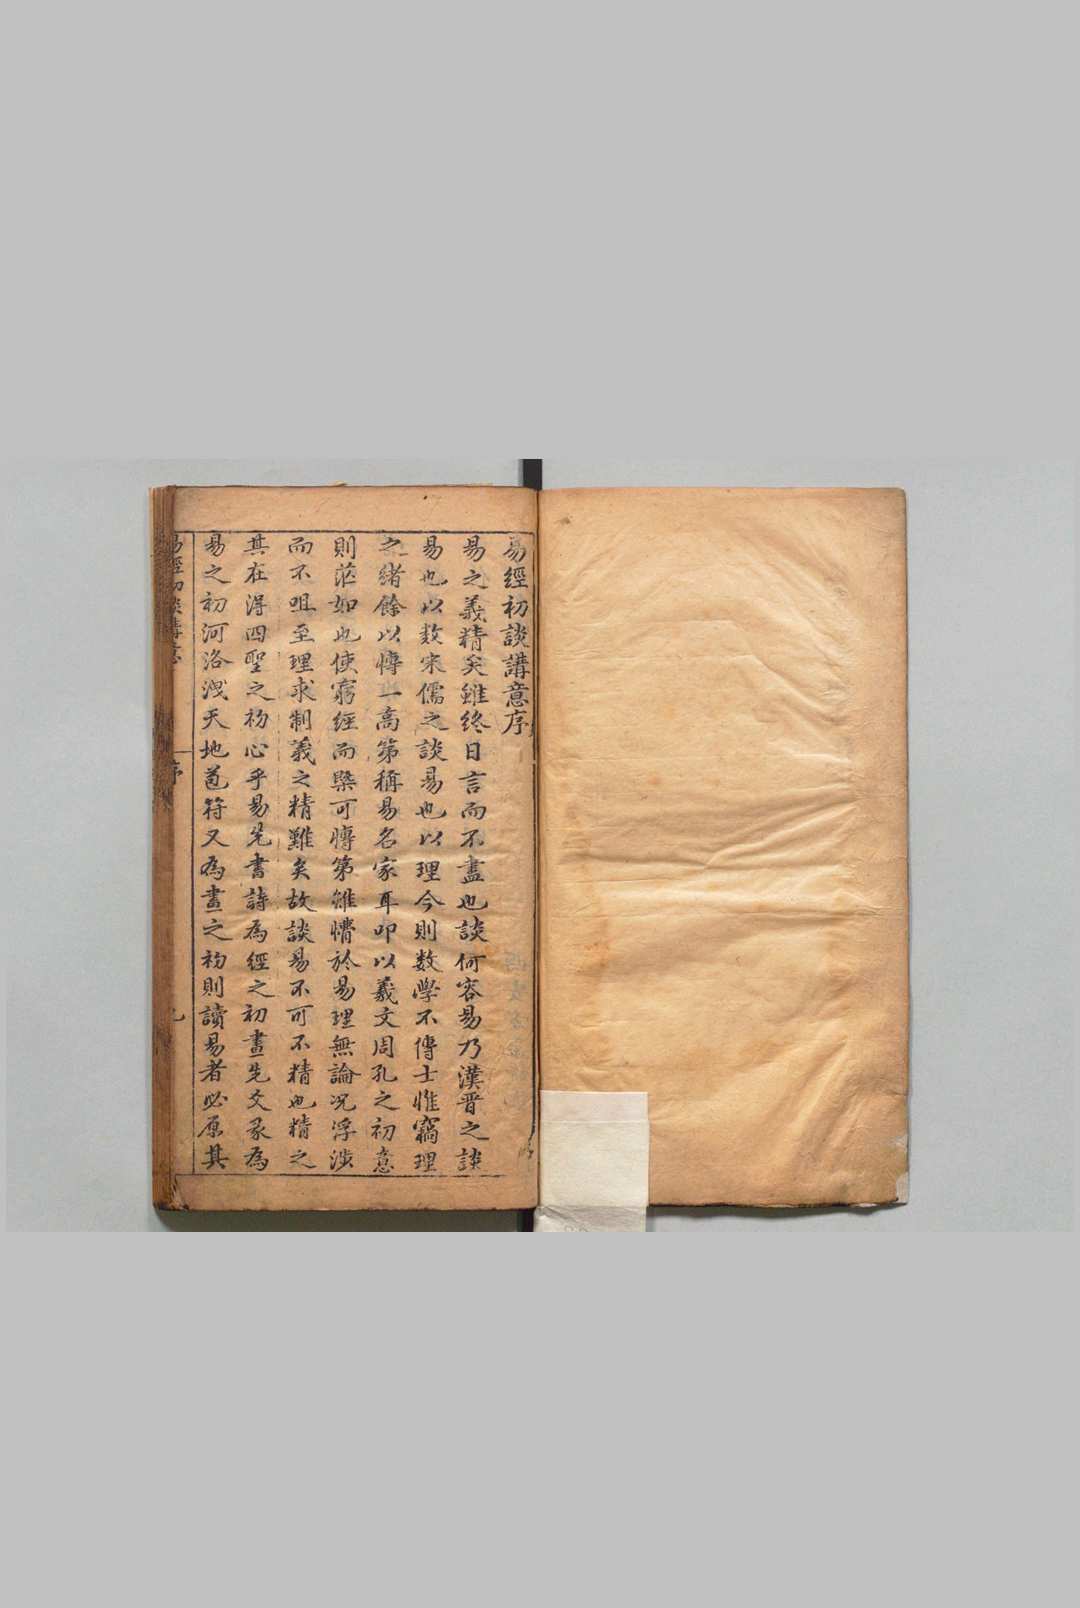 易經初談講意序
易之義精矣雖終日言而不盡也談何容易乃漢晉之談
易也以数宋儒之談易也以理今則数學不傳士惟竊理
之緒餘以慱一高第稱易名家耳叩以羲文周孔之初意
則茫如也使窮經而槩可慱第雖懵於易理無論况浮淺
而不咀至理求制義之精難矣故談易不可不精也精之
其在淂四聖之初心乎易先書詩為經之初畫先文彖為
易之初河洛洩天地苞符又為畫之初則讀易者必原其
易經初談講意
序